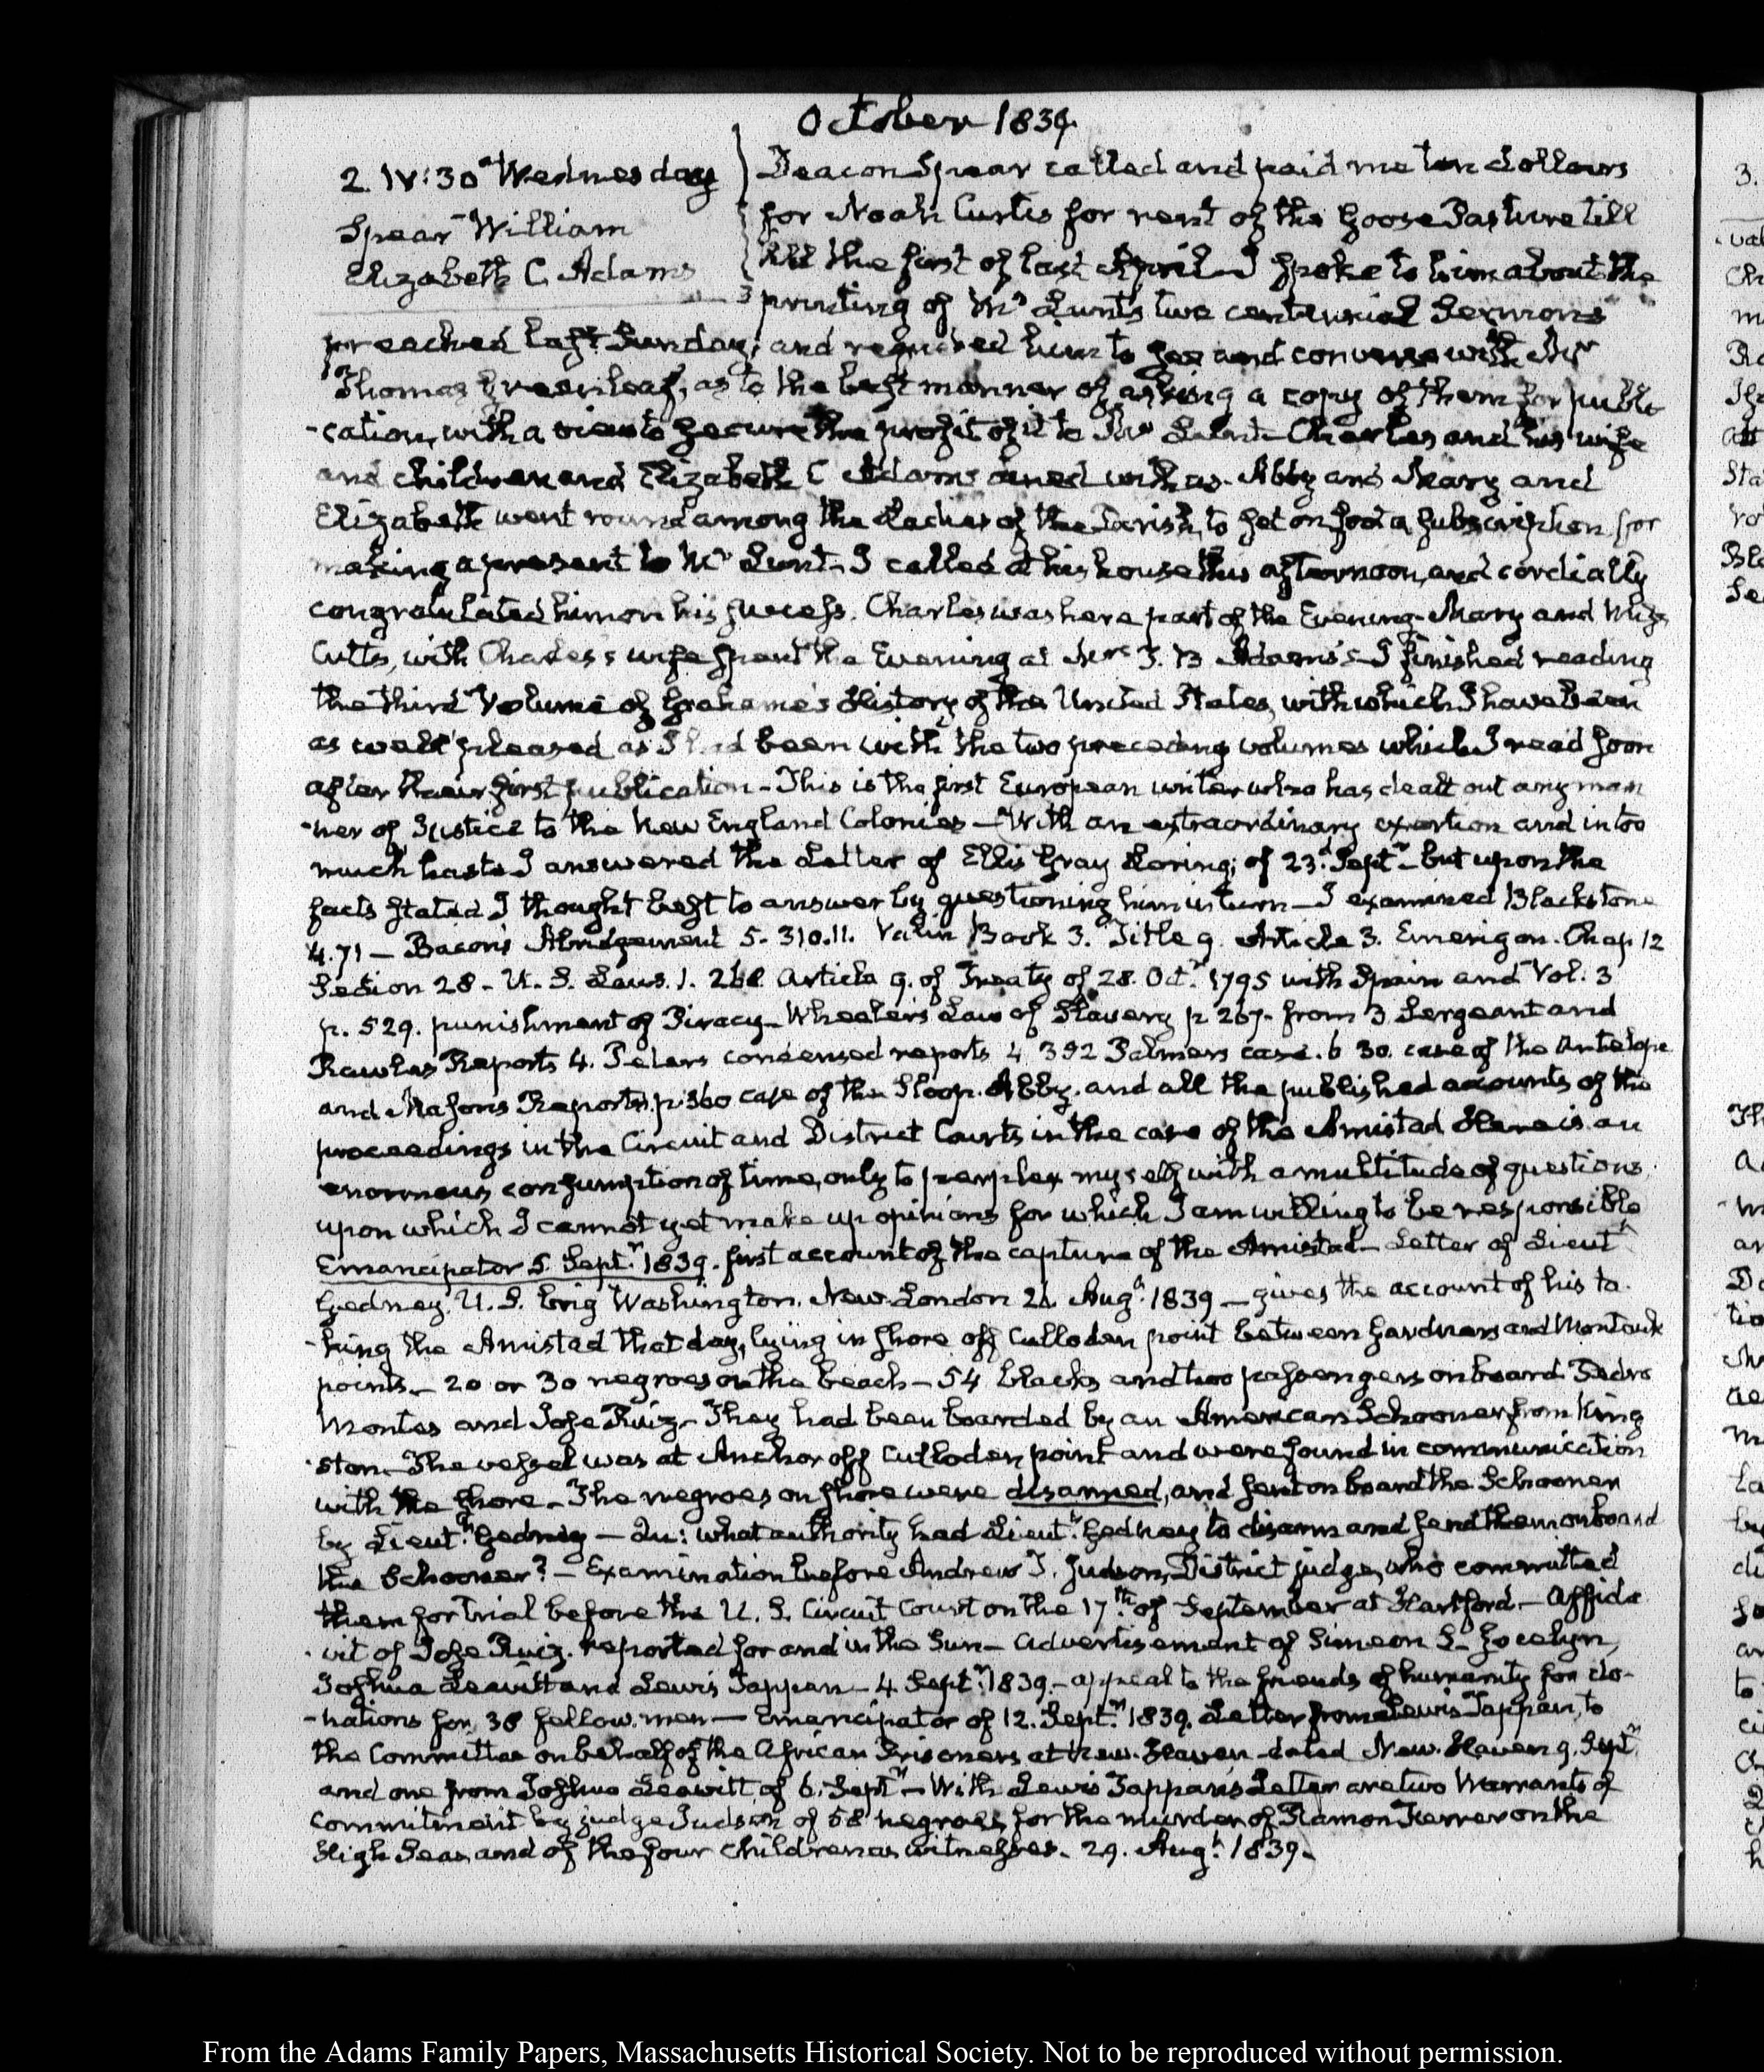 October 1839
2. IV:30 Wednesday
Spear William
Elizabeth C. Adams
Deacon Spear called and paid me ten dollars
for Noah Curtis for rent of the Goose Pasture till
till the first of last April. I spoke to him about the
printing of Mr Lunt's two centurial Sermons
preached last Sunday; and requested him to go and converse with Mr
Thomas Greenleaf, as to the best manner of asking a copy of them for publi
-cation, with a view to secure the profit of it to Mr Lunt. Charles and his wife
and children and Elizabeth C Adams dined with us. Abby and Mary and
Elizabeth went round among the Ladies of the Parish, to set on foot a subscription for
making a present to Mr Lunt. I called at his house this afternoon, and cordially
congratulated him on his success. Charles was here part of the Evening. Mary and Miss
Cutts, with Charles's wife spent the Evening at Mrs T. B Adams's. I finished reading
the third Volume of Grahame's History of the United States, with which I have been
as well pleased as I had been with the two preceding volumes which I read soon
after their first publication - This is the first European writer who has dealt out any man
-ner of Justice to the New England Colonies - With an extraordinary exertion and in too
much haste I answered the Letter of Ellis Gray Loring; of 23.d Septr - but upon the
facts stated I thought best to answer by questioning him in turn - I examined Blackstone
4.71 - Bacon's Abridgement 5. 310.11. Valin Book 3. Title 9. Article 3. Emerigon. Chap 12
Section 28 - U. S. Laws. 1. 268. Article 9. of Treaty of 28. Octr. 1795 with Spain and Vol. 3
p. 529. punishment of Piracy - Wheeler's Law of Slavery p 267. from 3 Sergeant and
Rawles Reports 4. Peters condensed reports 4 392 Palmers case. 6 30. case of the Antelope
and Masons Reports. p. 360 case of the Sloop. Abby. and all the published accounts of the
proceedings in the Circuit and District Courts in the case of the Amistad. Here is an
enormous consumption of time, only to perplex myself with a multitude of questions
upon which I cannot yet make up opinions for which I am willing to be responsible
Emancipator 5. Septr. 1839. first account of the capture of the Amistad - Letter of Lieutt
Gedney. U. S. brig Washington. New-London 26. Augt. 1839 - gives the account of his ta-
-king the Amistad that day, lying in shore off Culloden point between Gardners and Montauk
points. - 20 or 30 negroes on the beach - 54 blacks and two passengers on board Pedro
Montes and Jose Ruiz - They had been boarded by an American Schooner from King
-ston - The vessel was at Anchor off Culloden point and were found in communication
with the shore - The negroes on shore were disarmed, and sent on board the Schooner
by Lieutt. Gedney - Qu: what authority had Lieutt. Gedney to disarm and send them on board
the Schooner? - Examination before Andrew T. Judson, District judge, who committed
them for trial before the U. S. Circuit Court on the 17th of September at Hartford - Affida
-vit of Jose Ruiz. reported for and in the Sun - Advertisement of Simeon S. Jocelyn,
Joshua Leavitt and Lewis Tappan - 4 Septr. 1839 - appeal to the friends of humanity for do-
-nations for 38 fellow men - Emancipator of 12. Septr. 1839. Letter from Lewis Tappan, to
the Committee on behalf of the African Prisoners at New-Haven dated New. Haven 9. Septr.
and one from Joshua Leavitt of 6. Septr - With Lewis Tappan's Letter are two Warrants of
commitment by judge Judson of 58 negroes for the murder of Ramon Ferrer on the
High Seas, and of the four children as witnesses. 29. Augt. 1839.
From the Adams Family Papers, Massachusetts Historical Society. Not to be reproduced without permission.